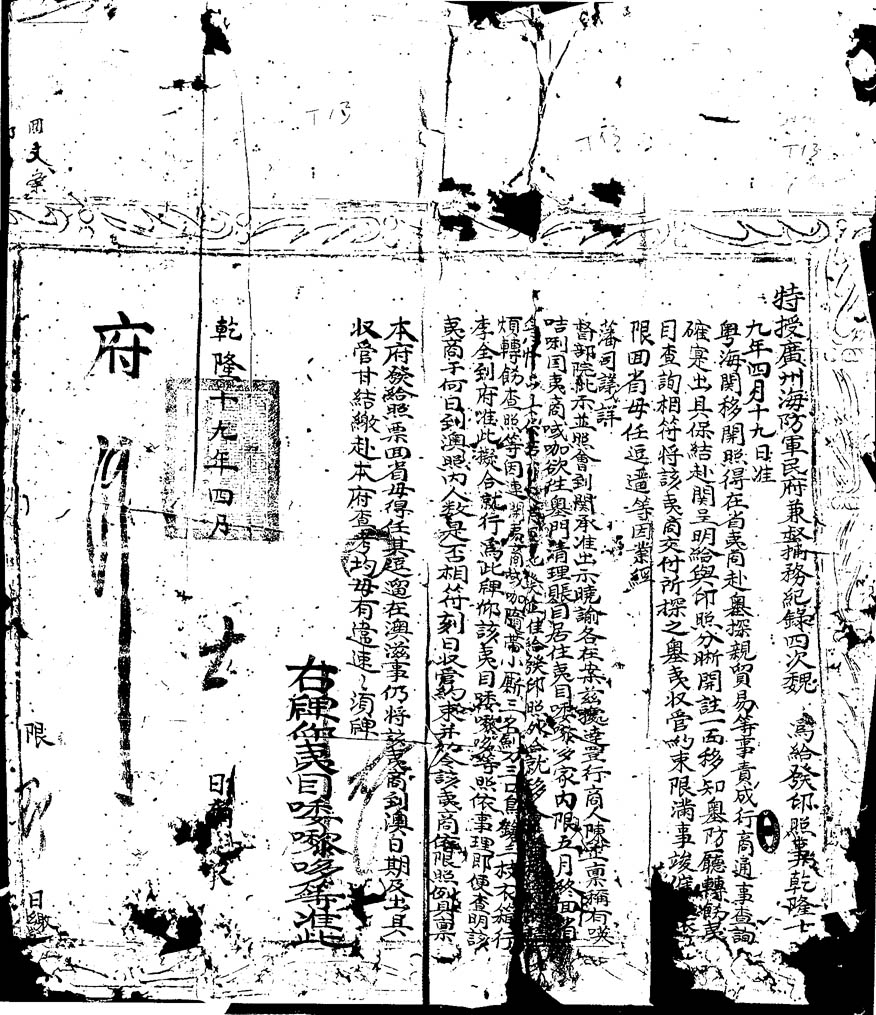 特授廣州海防軍民府兼督捕務紀錄四次魏　為給發印照事乾隆十
九年四月十九日准
粵海關移開照得在省夷商赴墺探親貿易等事責成行商通事查詢
確寔出具保結赴關呈明給與印照分晰開註一面移知墺防廳轉飭夷
目查詢相符將該夷商交付所探之墺夷收管約束限滿事竣催
限回省毋任逗遛等因業經
藩司議詳
督部院批示並照會到關承准出示曉諭各在案茲據達豐行商人陳 稟稱有㗆
咭唎国夷商 咖欲往墺門清理賬目居住夷目喽嚟哆家內限五月終回省
給發印照外合就移
煩轉飭查照等因連開夷商 咖隨帶小厮三名 刀三口 鎗二枝衣箱 行
李全到府准此擬合就行為此牌仰該夷目喽嚟哆等照依事理即便查明該
夷商于何日到澳照內人数是否相符刻日收管約束并 令該夷商依限照例具稟
本府發給照票回省毋得任其逗遛在澳滋事仍將該夷商到澳日期及出具
收管甘結繳赴本府查考均毋有違速速須牌
右牌仰夷目喽嚟哆等准此
乾隆十九年四月 廿 日
府
限 日繳
文案
T13
T13
T13